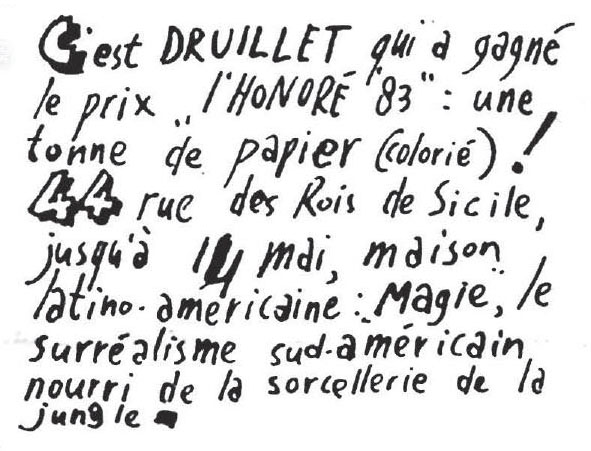 C'est DRUILLET qui a gagné
le prix „l'HONORÉ '83" : une
tonne de papier (colorié) !
44 rue des Rois de Sicile,
jusqu'à 14 mai, maison
latino-américaine : „Magie", le
surréalisme sud-américain
nourri de la sorcellerie de la
jungle -